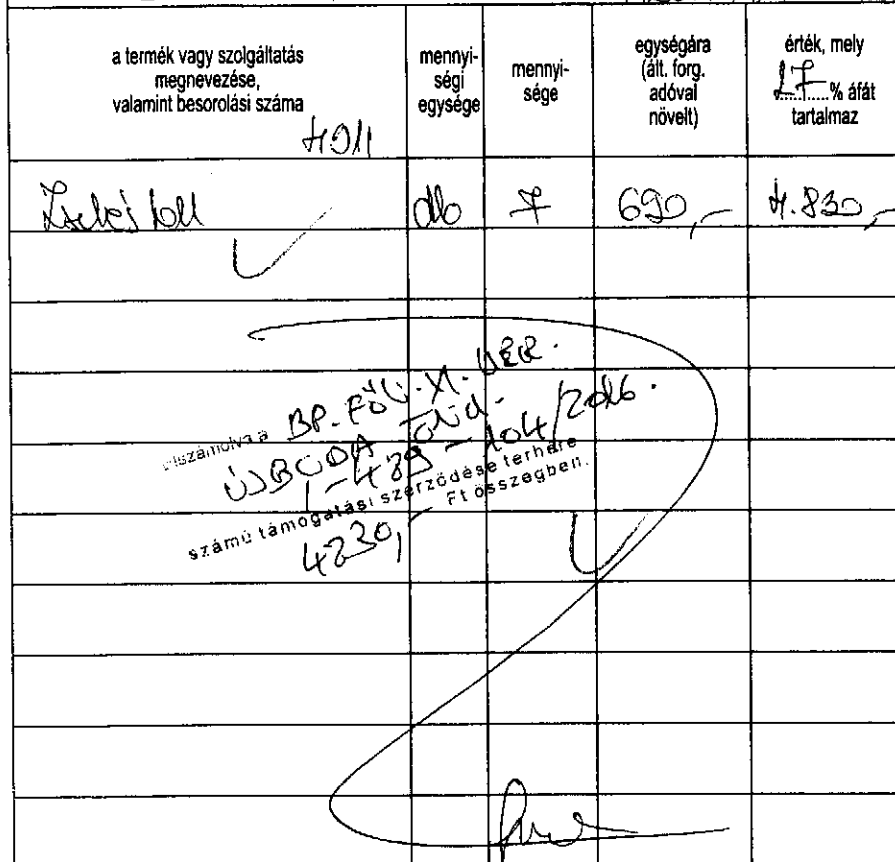 a termék vagy szolgáltatás
megnevezése,
valamint besorolási száma
mennyi-
ségi
egysége
mennyi-
sége
egységára
(ált. forg.
adóval
növelt)
érték, mely
27 % áfát
tartalmaz
toll db 7 690,- 4.830,-
elszámolva a BP. FŐV. XI. KER.
ÚJBUDA
104/2016.
számú támogatási szerződése terhére
4230,- Ft összegben.